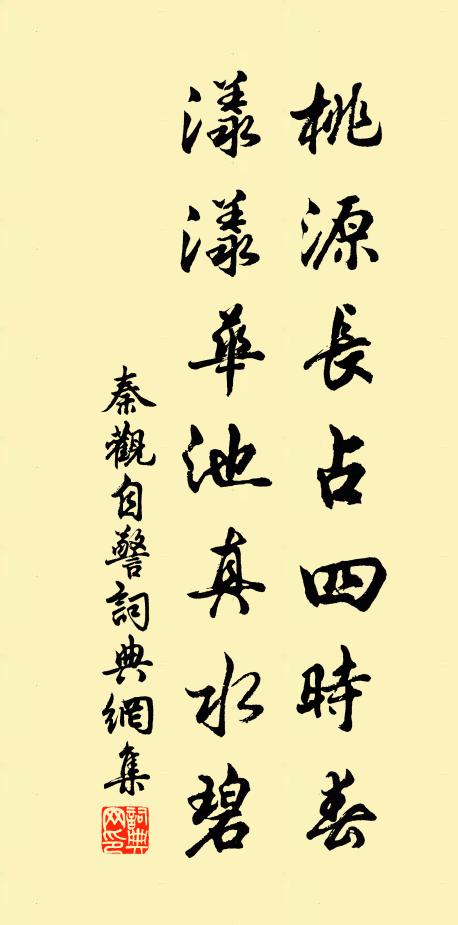 桃源長占四時春
漾漾華池真水碧
秦觀自警詞典網集
詞典网印